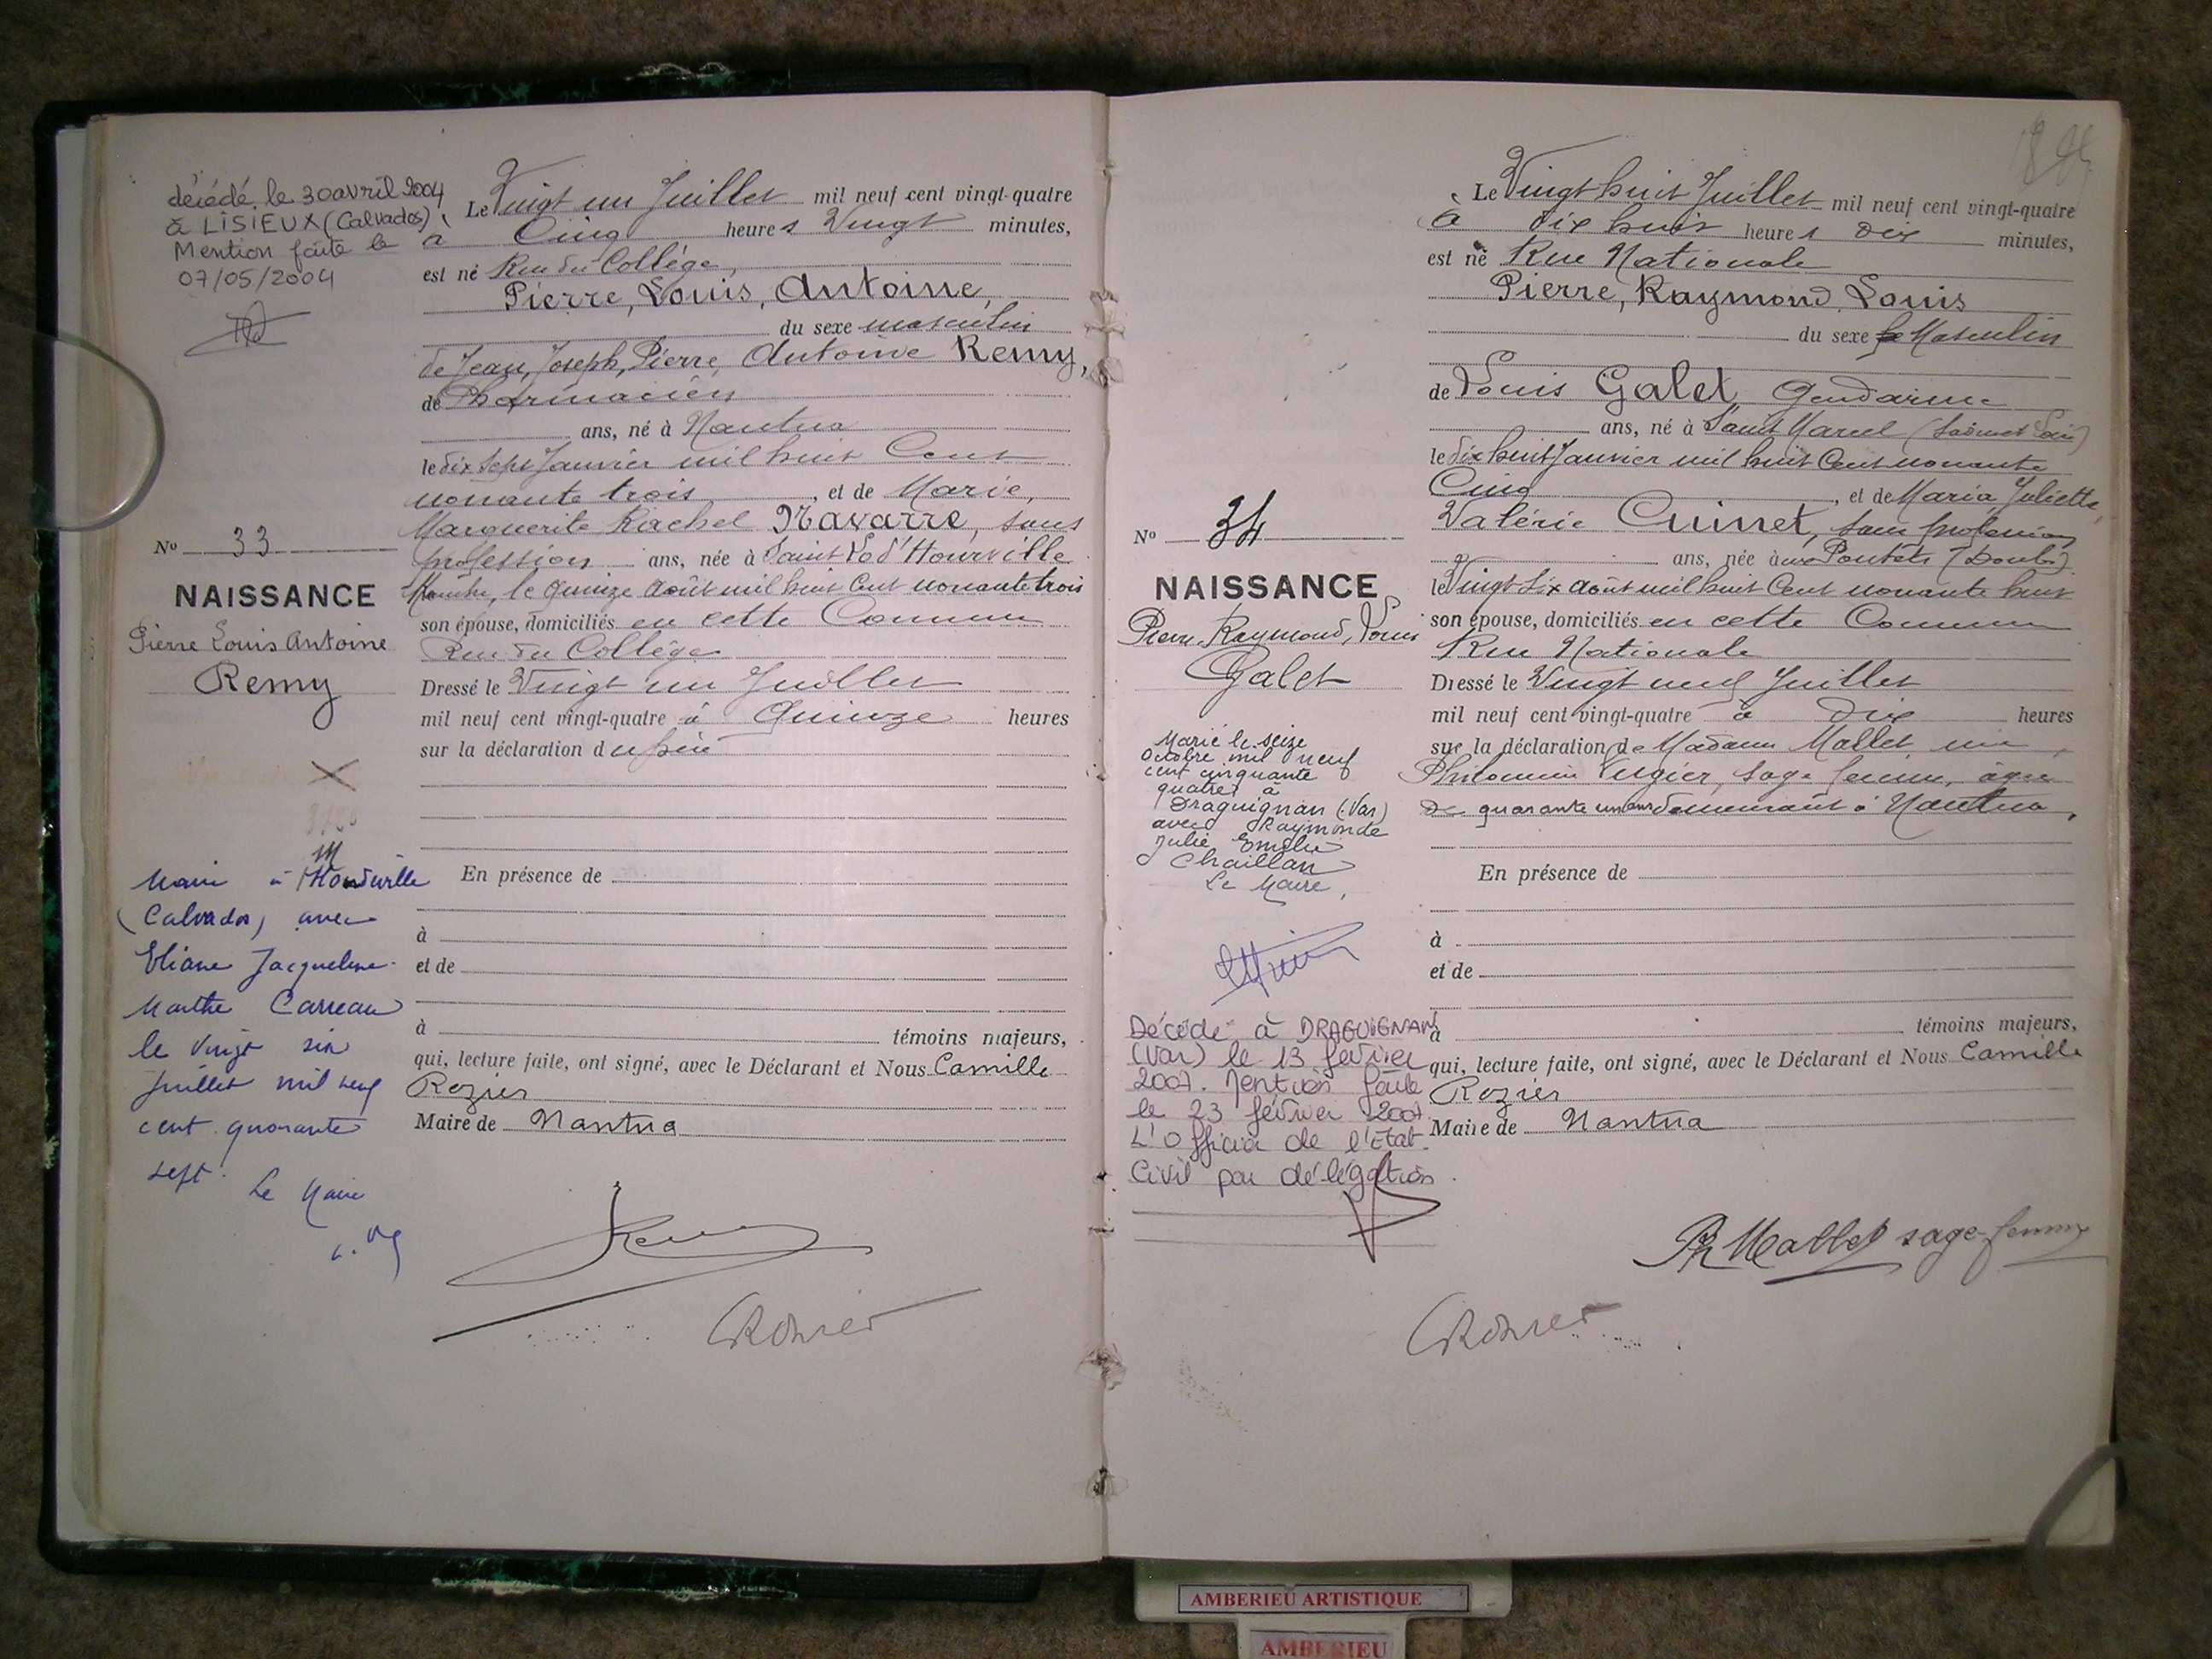 décédé le 30 avril 2004
à LISIEUX (Calvados)
Mention faite le
07/05/2004
No 33
NAISSANCE
Pierre Louis Antoine
Remy
Marié à Mondeville
(Calvados) avec
Eliane Jacqueline
Marthe Carreau
le vingt six
juillet mil neuf
cent quarante
sept.
Le Maire
Le Vingt un Juillet mil neuf cent vingt-quatre
à Cinq heures Vingt minutes,
est né Rue du Collège,
Pierre, Louis, Antoine,
du sexe masculin
de Jean, Joseph, Pierre, Antoine Remy,
de Pharmacien
ans, né à Nantua
le dix sept Janvier mil huit Cent
nonante trois, et de Marie,
Marguerite Rachel Navarre, sans
profession ans, née à Saint Lo d'Hourville
Manche, le quinze Août mil huit Cent nonante trois
son épouse, domiciliés en cette Commune
Rue du Collège
Dressé le Vingt un Juillet
mil neuf cent vingt-quatre à Quinze heures
sur la déclaration du père
En présence de
à
et de
à témoins majeurs,
qui, lecture faite, ont signé, avec le Déclarant et Nous Camille
Rozier
Maire de Nantua
Remy
CRozier
No 34
NAISSANCE
Pierre, Raymond, Louis
Galet
Marié le seize
Octobre mil neuf
cent cinquante
quatre à
Draguignan (Var)
avec Raymonde
Julie Emilie
Chaillan
Le Maire,
Décédé à DRAGUIGNAN
(Var) le 13 février
2007. Mention faite
le 23 février 2007.
L'Officier de l'Etat
Civil par délégation
Le Vingt huit Juillet mil neuf cent vingt-quatre
à dix huit heures dix minutes,
est né Rue Nationale
Pierre, Raymond, Louis
du sexe Masculin
de Louis Galet, Gendarme
ans, né à Saint Marcel (Saône et Loire)
le dix huit Janvier mil huit Cent nonante
Cinq, et de Maria Juliette,
Valérie Cuinet, sans profession
ans, née aux Pontets (Doubs)
le Vingt six Août mil huit Cent nonante huit
son épouse, domiciliés en cette Commune
Rue Nationale
Dressé le Vingt neuf Juillet
mil neuf cent vingt-quatre à dix heures
sur la déclaration de Madame Mallet, née
Philomène Vugier, sage femme, âgée
de quarante un ans demeurant à Nantua,
En présence de
à
et de
à témoins majeurs,
qui, lecture faite, ont signé, avec le Déclarant et Nous Camille
Rozier
Maire de Nantua
Ph Mallet sage-femme
CRozier
AMBERIEU ARTISTIQUE
AMBERIEU